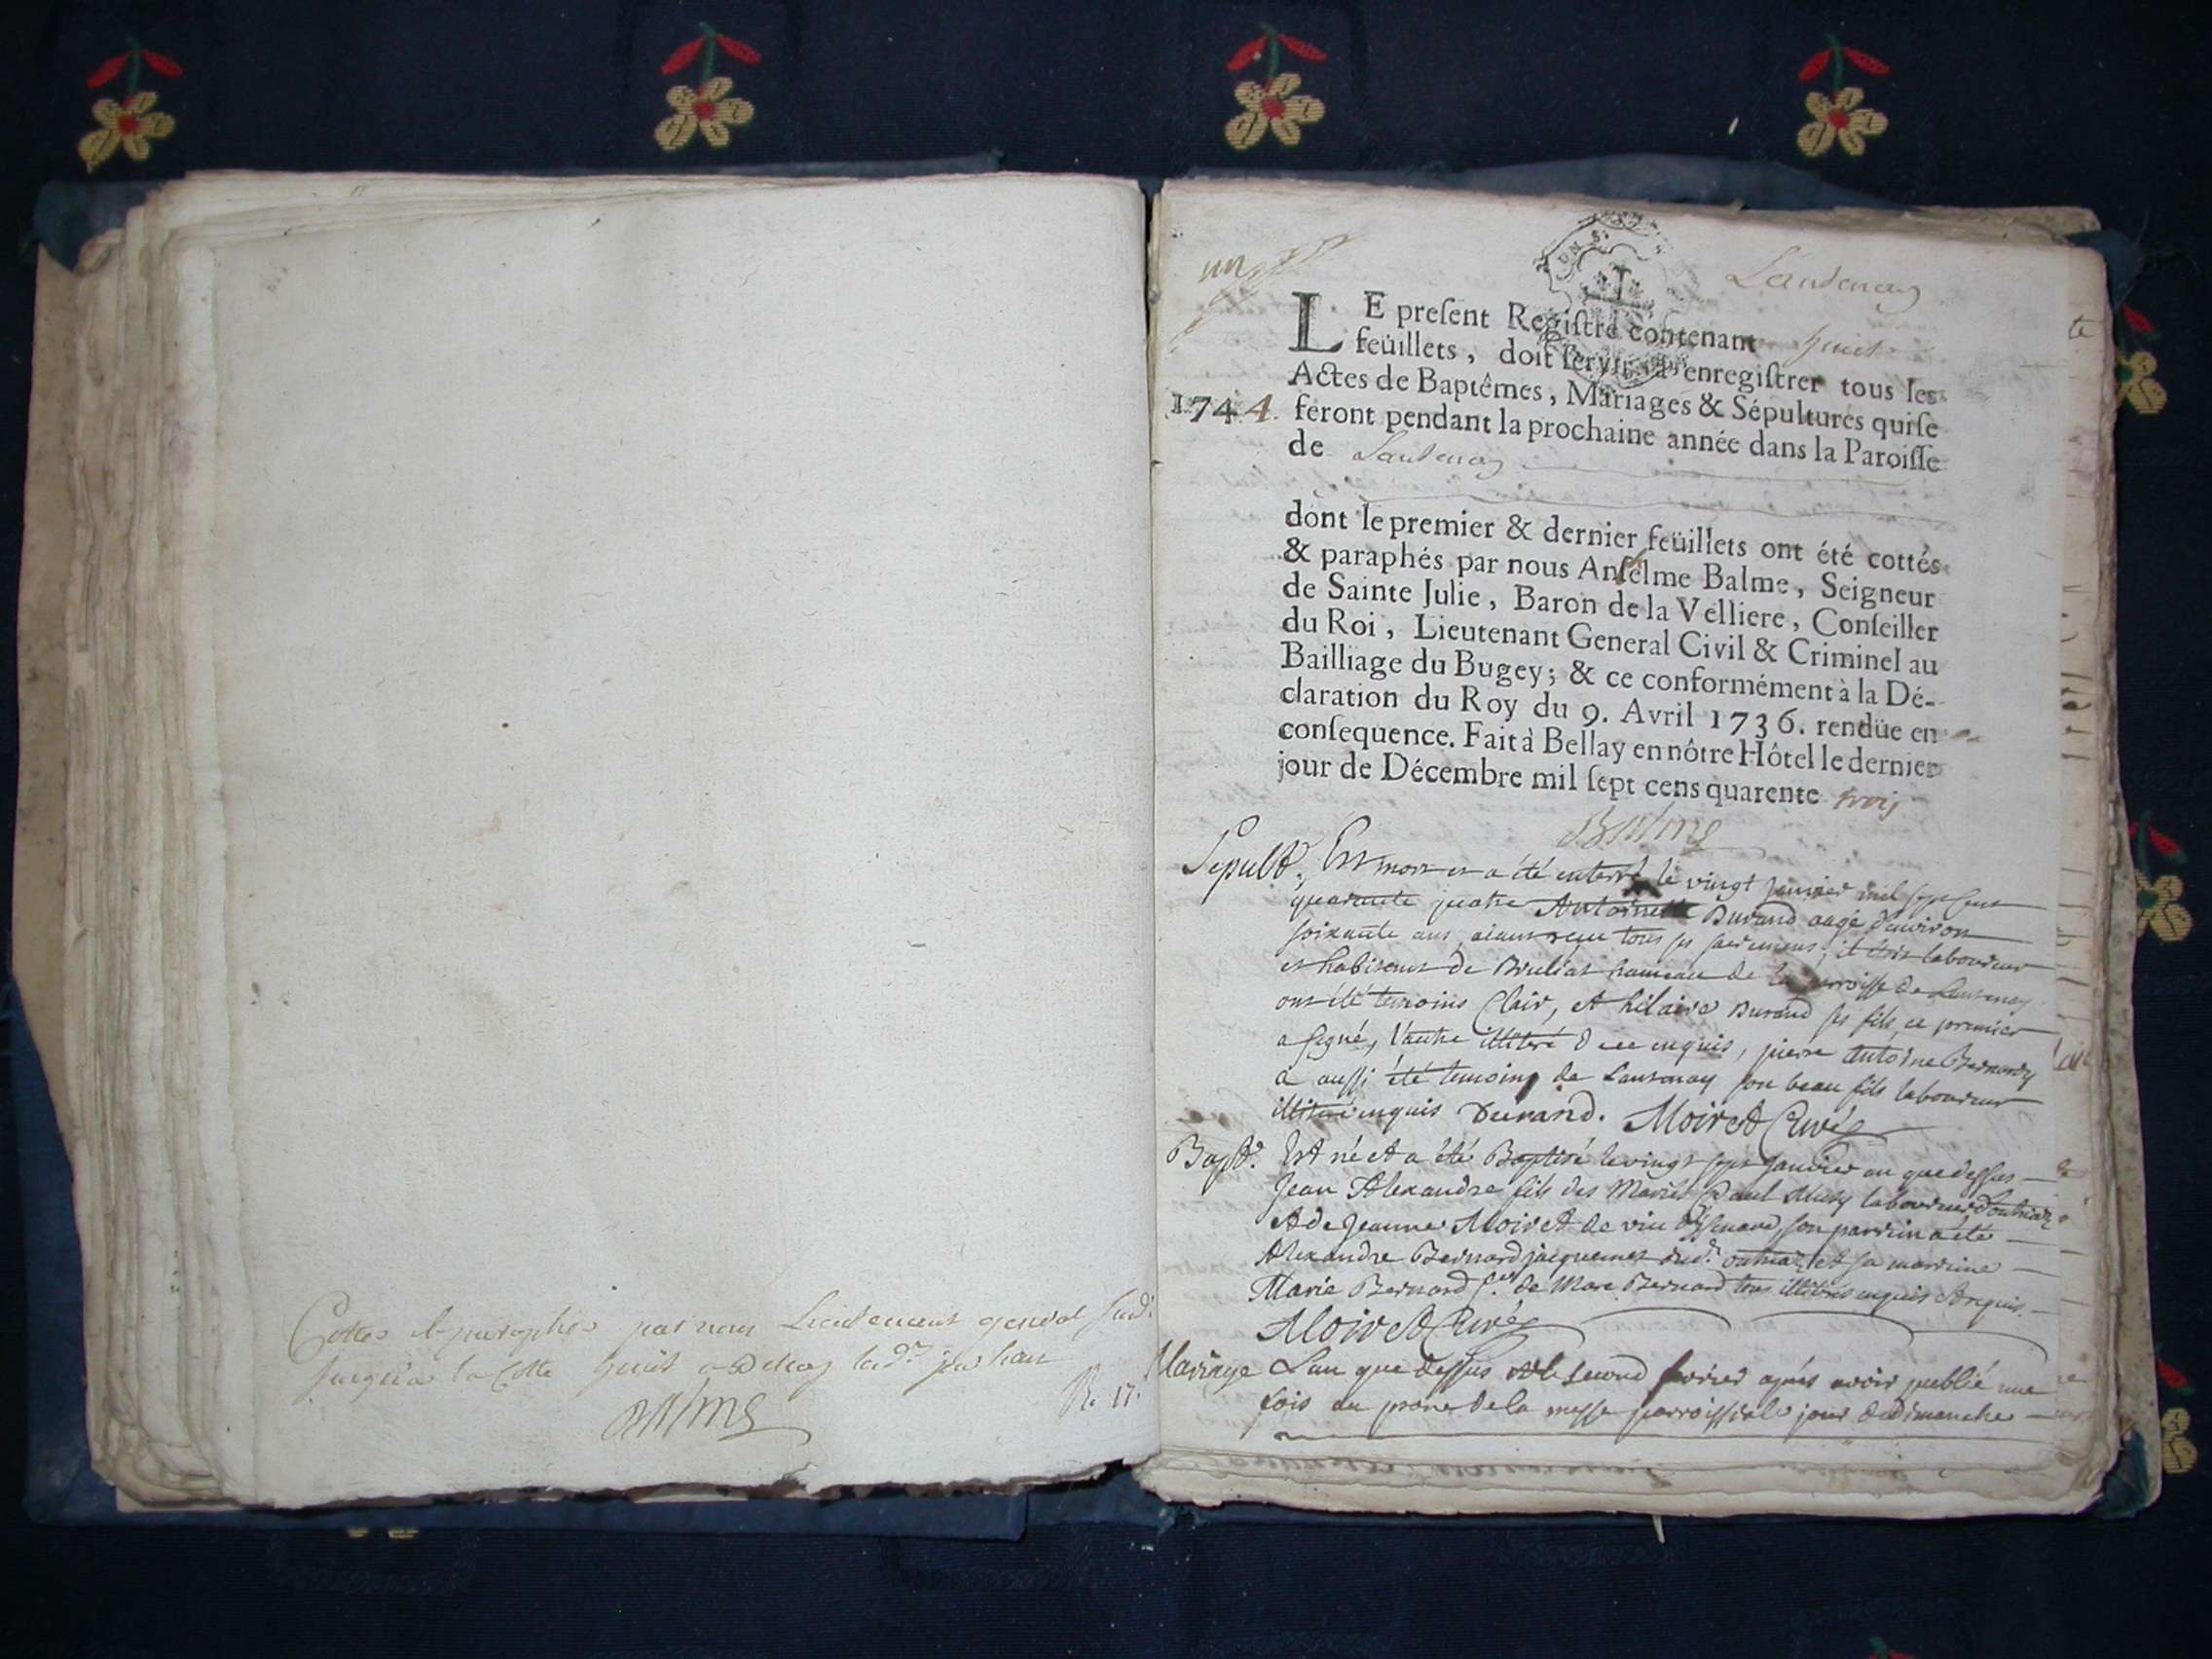 Cottes et paraphes par nous Lieutenant general susd.
jusqu'a la Cotte huit a Belley led.
Balme
R. 17.
un
UN S.
Lantenay
LE preſent Regiſtre contenant huit
feüillets, doit ſervir à enregiſtrer tous les
Actes de Baptêmes, Mariages & Sépultures qui ſe
1744. feront pendant la prochaine année dans la Paroiſſe
de Lantenay
dont le premier & dernier feüillets ont été cottés
& paraphés par nous Anſelme Balme, Seigneur
de Sainte Julie, Baron de la Velliere, Conſeiller
du Roi, Lieutenant General Civil & Criminel au
Bailliage du Bugey; & ce conformément à la Dé-
claration du Roy du 9. Avril 1736. rendüe en
conſequence. Fait à Bellay en nôtre Hôtel le dernier
jour de Décembre mil ſept cens quarente trois
Balme
Sepult. Est mort et a été enterré le vingt janvier mil sept cens
quarante quatre Antoine Durand aagé d'environ
soixante ans, aiant reçu tous ses sacremens, il étoit laboureur
et habitant de Bruliat hameau de la parroisse de Lantenay
ont été temoins Clair, et hilaire Durand ses fils, ce premier
a signé, l'autre illiteré de ce enquis, pierre Antoine Bernardy
a aussi été temoins de Lantenay son beau fils laboureur
illiteré enquis Durand. Moiret Curé
Bapt. Est né et a été Baptisé le vingt sept janvier an que dessus
Jean Alexandre fils des Mariés Paul Musy laboureur d'outriaz
et de Jeanne Moiret de vieu d'yzenave, son parrain a été
Alexandre Bernard jacquemet dud. outriaz et sa marrine
Marie Bernard f. de Marc Bernard tous illiterés enquis et requis.
Moiret Curé
Mariage L'an que dessus et le second fevrier aprés avoir publié une
fois au prone de la messe parroissiale jour de dimanche